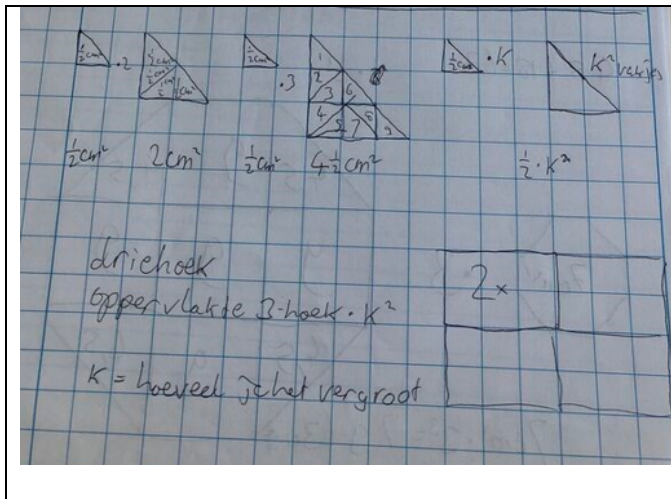 ½cm² · 2 ½cm² ½cm² ½cm² ½cm² ½cm² · 3 1 2 3 4 5 6 7 8 9 ½cm² · K K² vakjes
½cm² 2cm² ½cm² 4½cm² ½ · K²
driehoek
oppervlakte 3-hoek · K²
K = hoeveel je het vergroot
2×